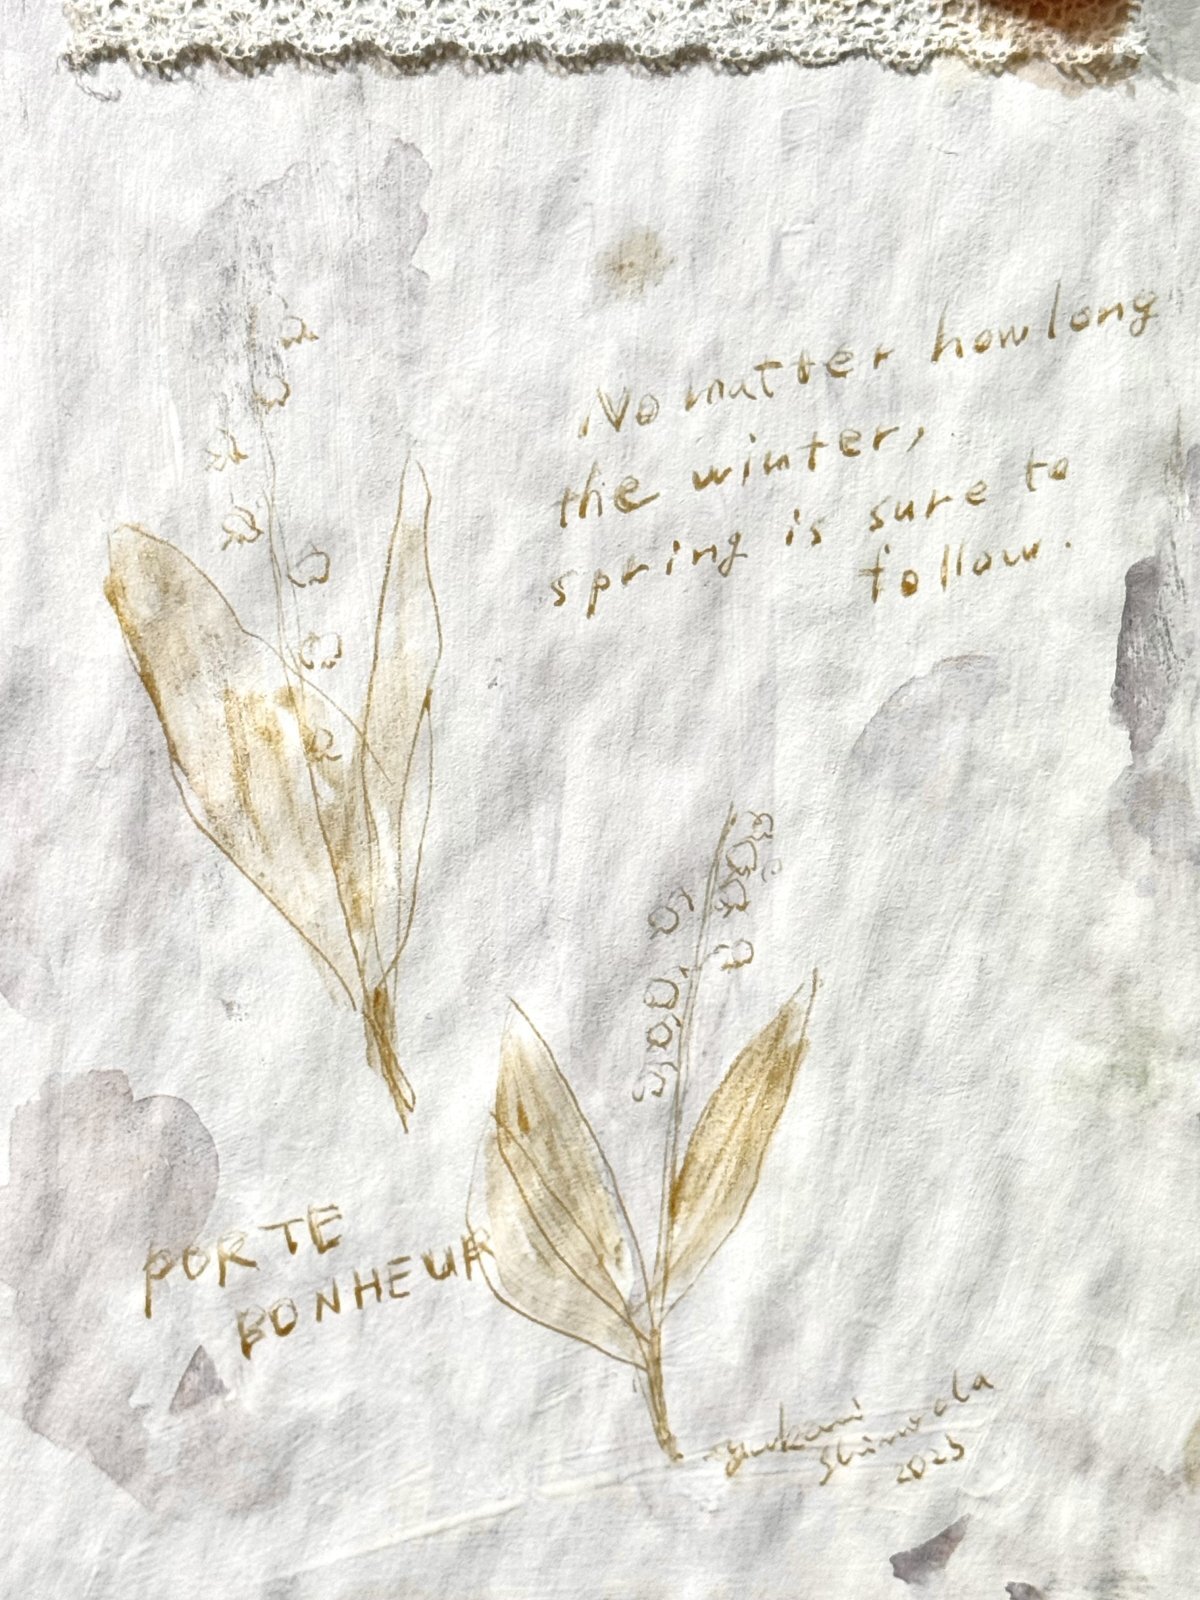 No matter how long
the winter,
spring is sure to
follow.
PORTE
BONHEUR
Shimoda
2025